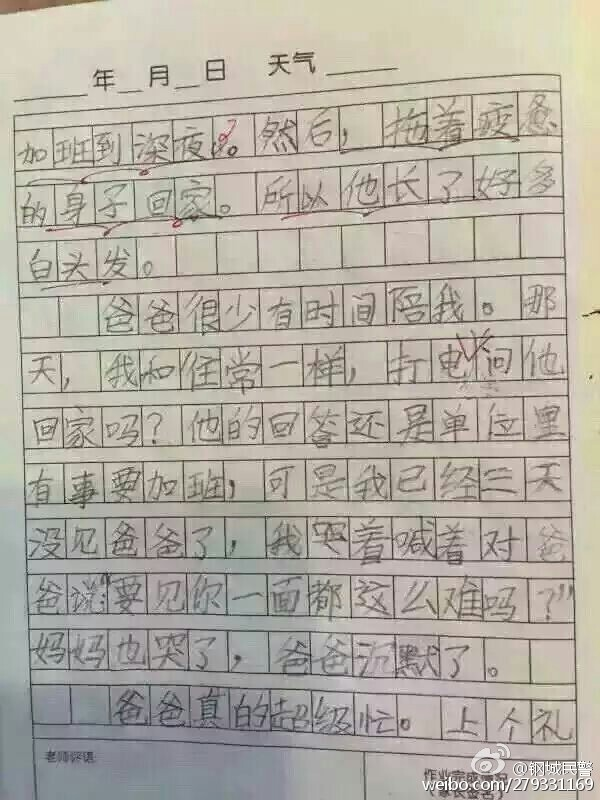 年 月 日 天气
加班到深夜。然后，拖着疲惫
的身子回家。所以他长了好多
白头发。
爸爸很少有时间陪我。那
天，我和住常一样，打电问他
回家吗？他的回答还是单位里
有事要加班，可是我已经三天
没见爸爸了，我哭着喊着对爸
爸说："要见你一面都这么难吗？"
妈妈也哭了，爸爸沉默了。
爸爸真的超级忙。上个礼
老师评语
@钢城民警
weibo.com/279331169